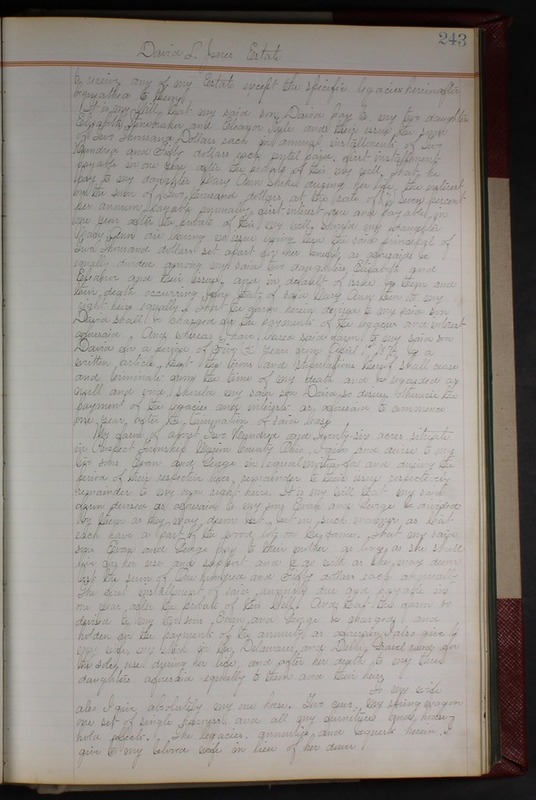 243
David L. Jones Estate
to receive any of my Estate except the specific legacies hereinafter
bequeathed to them.
It is my Will that my said son David pay to my two daughters
Elizabeth and Eleanor and their heirs the sum
of Two Thousand Dollars each in annual installments of Two
Hundred and Fifty dollars each until paid, first installment
payable in one year after the probate of this my will, that he
pay to my daughter Mary Ann during her life the interest
on the sum of Two thousand dollars at the rate of seven percent
per annum payable annually, first interest due and payable in
one year after the probate of this my will. Should my daughter
Mary Ann die leaving no issue living then the said principal of
Two thousand dollars set apart for her benefit as aforesaid be
equally divided among my said two daughters Elizabeth and
Eleanor and their heirs, and in default of issue to them and
their death occurring before that of said Mary Ann then to my
right heirs equally. That the farm herein devised to my said son
David shall be charged for the payments of the legacies and interest
aforesaid. And whereas I have leased said farm to my said son
David for a period of years from April 1, by a
written article, that the term and stipulations thereof shall cease
and terminate from the time of my death and be regarded as
null and void, should my said son David so desire, otherwise the
payment of the legacies and interests as aforesaid to commence
one year after the termination of said lease.
My farm of about Two Hundred and Seventy-six acres situate
in Prospect Township Marion County Ohio, I give and devise to my
two sons Evan and George in equal moieties for and during the
period of their respective lives, remainder to their issue respectively
remainder to my own right heirs. It is my will that my said
farm devised as aforesaid to my sons Evan and George be divided
by them as they may deem best, but in such manner as that
each have a part of the wood lots on the farm. That my said
sons Evan and George pay to their mother as long as she shall
live for her use and support and to do with as she may deem
best the sum of One hundred and Fifty dollars each annually
The first installment of said annuity due and payable in
one year after the probate of this Will. And that the farm so
devised to my sons Evan and George be charged and
holden for the payment of the annuity as aforesaid. I also give to
my wife my stock in the Delaware and Delhi Gravel road for
the sole use during her life, and after her death to my three
daughters aforesaid equally to them and their heirs
To my wife
also I give absolutely my one horse. Two cows, my spring wagon
one set of single harness and all my furniture and house
hold goods. The legacies, annuities, and bequests herein I
give to my beloved wife in lieu of her dower.